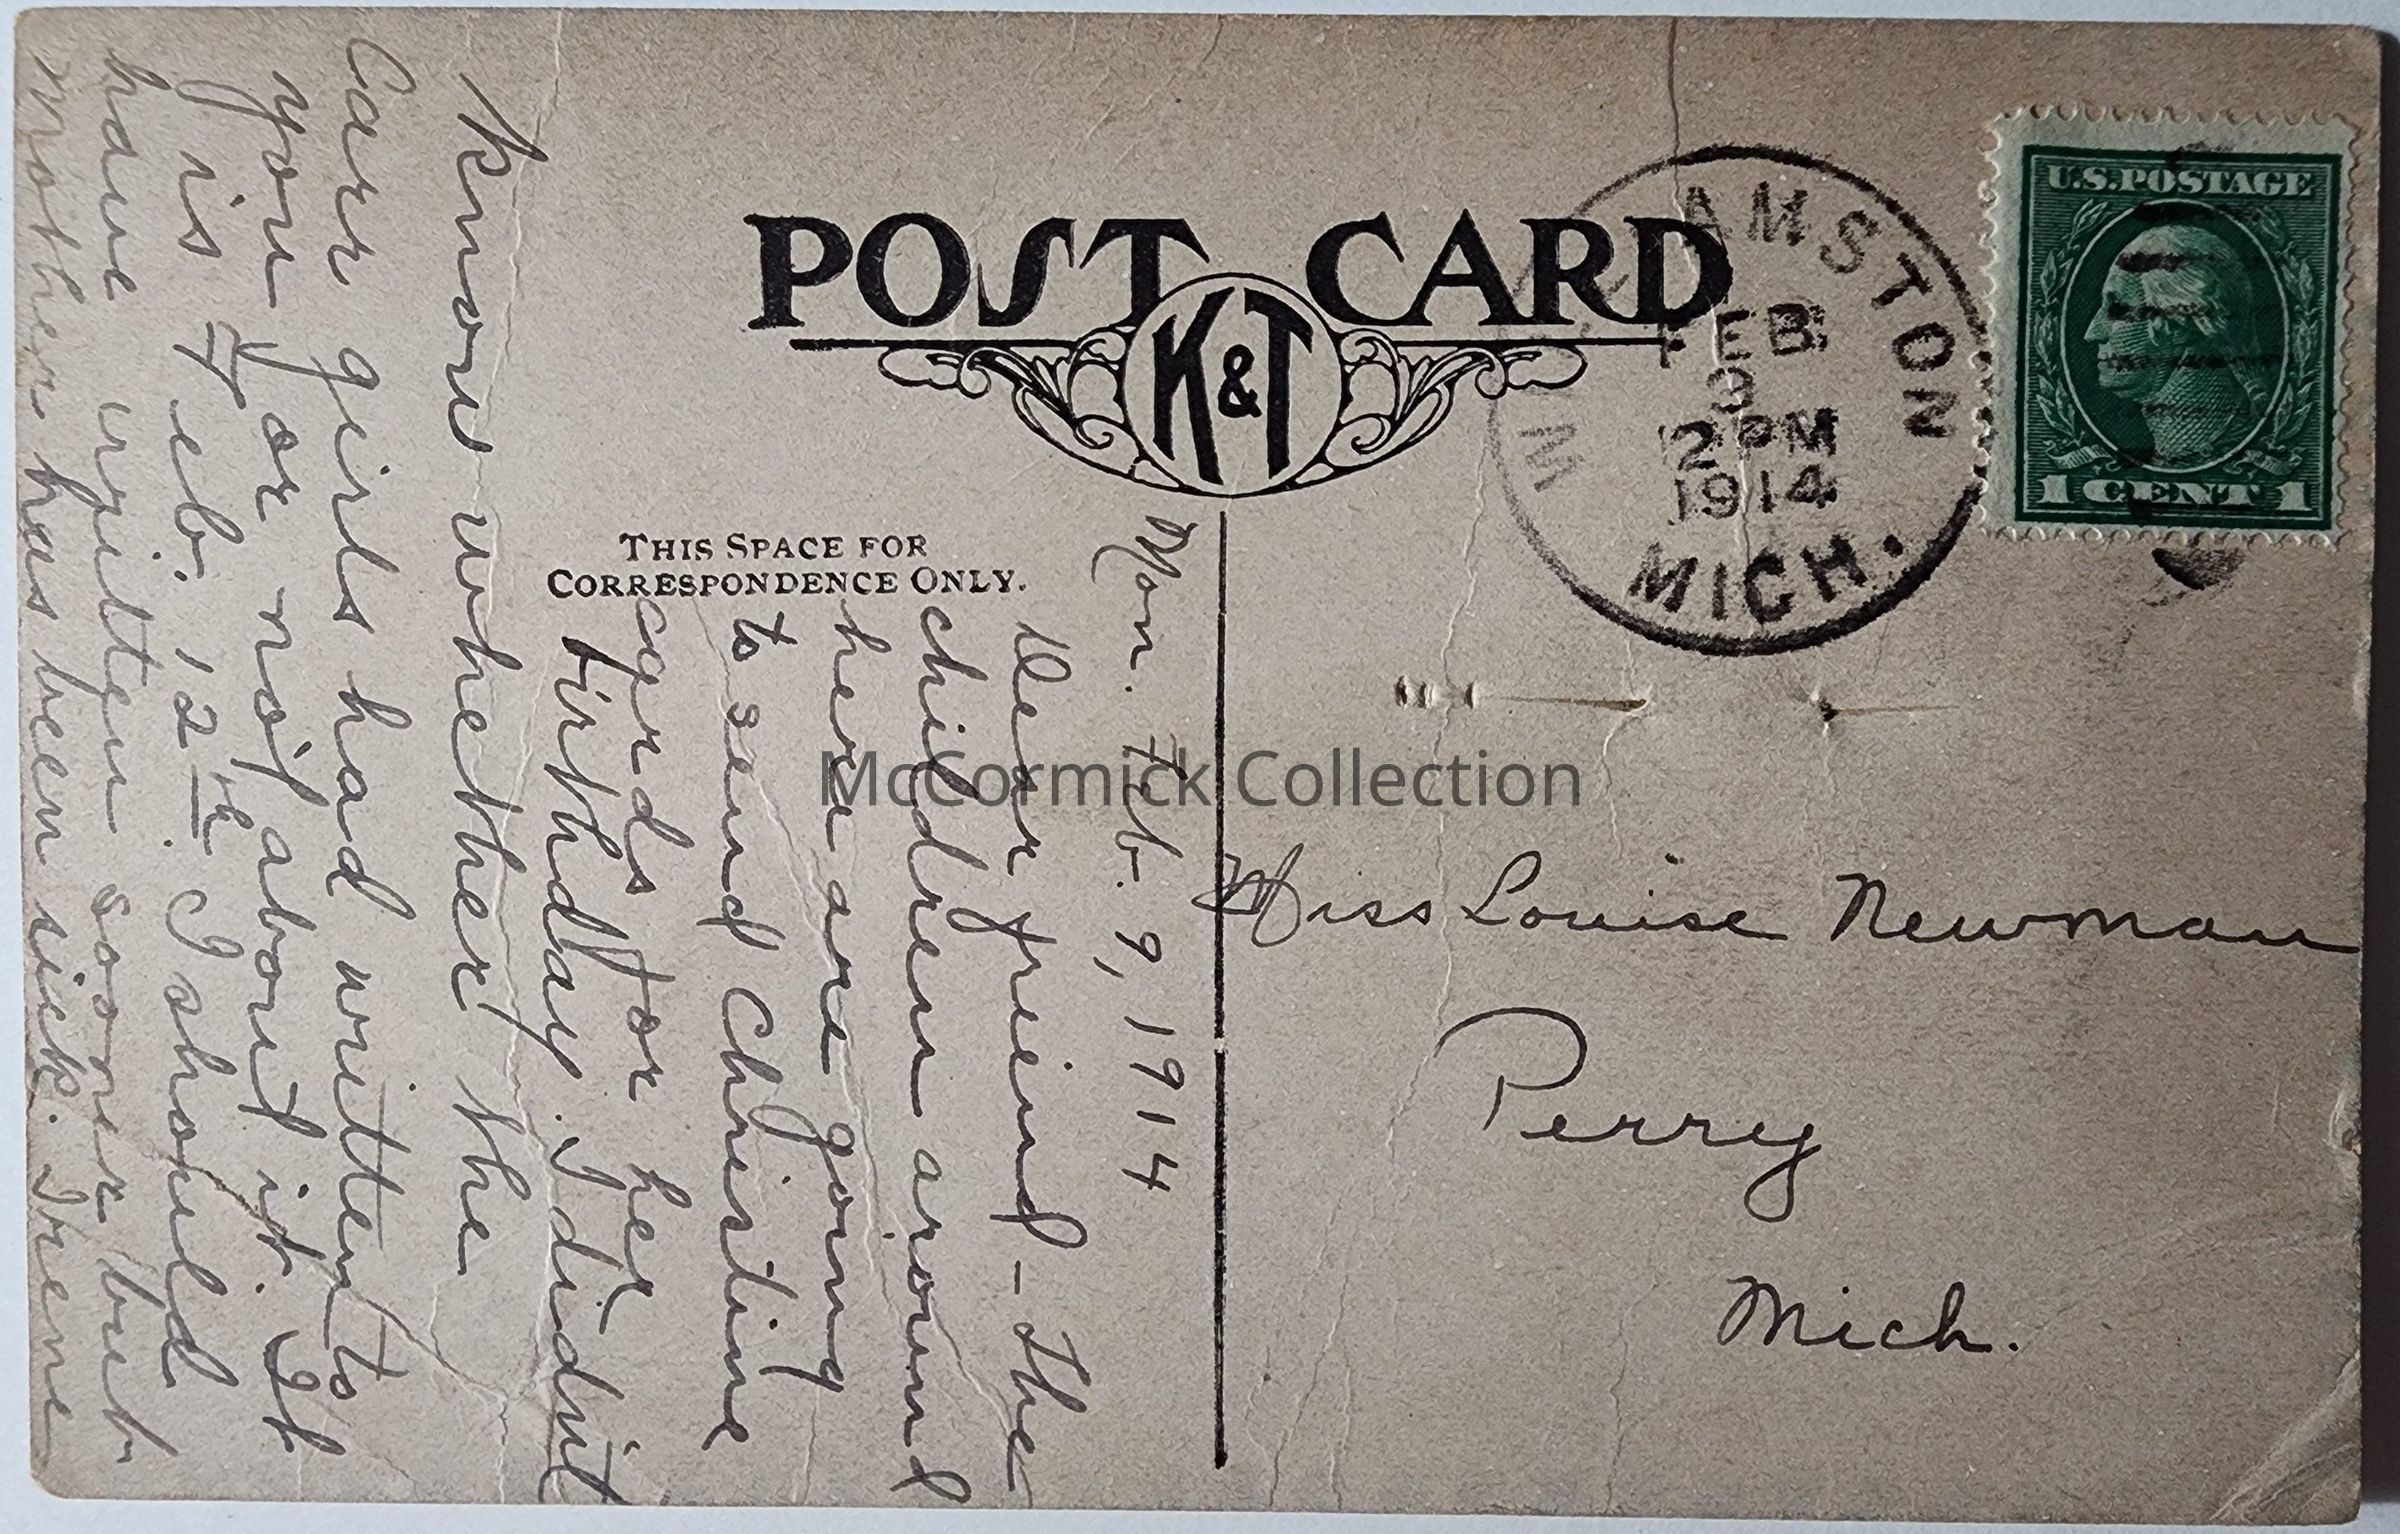 POST CARD
K&T
THIS SPACE FOR
CORRESPONDENCE ONLY.
AMSTON
FEB
9
2 PM
1914
MICH.
U.S. POSTAGE
1 CENT 1
Mon. Feb. 9, 1914
Dear Freind - The
children around
here are going
to send Christine
cards for her
birthday. I didnt
know whether the
Carr girls had written to
you or not about it. It
is Feb. 12th I should
have written sooner but
mother has been sick. Irene
Miss Louise Newman
Perry
Mich.
McCormick Collection